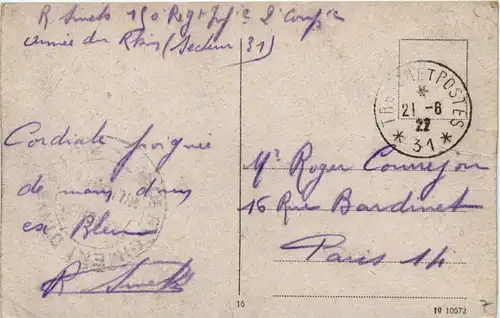 R Smets 150 Regt Infie 2e Compie
Armée du Rhin (Secteur 31)
TRESOR ET POSTES
*
21 -6
22
* 31 *
Cordiale poignée
de main d'un
ex Bleu
R Smets
Mr Roger Connejon
16 Rue Bardinet
Paris 14
16
19 10572